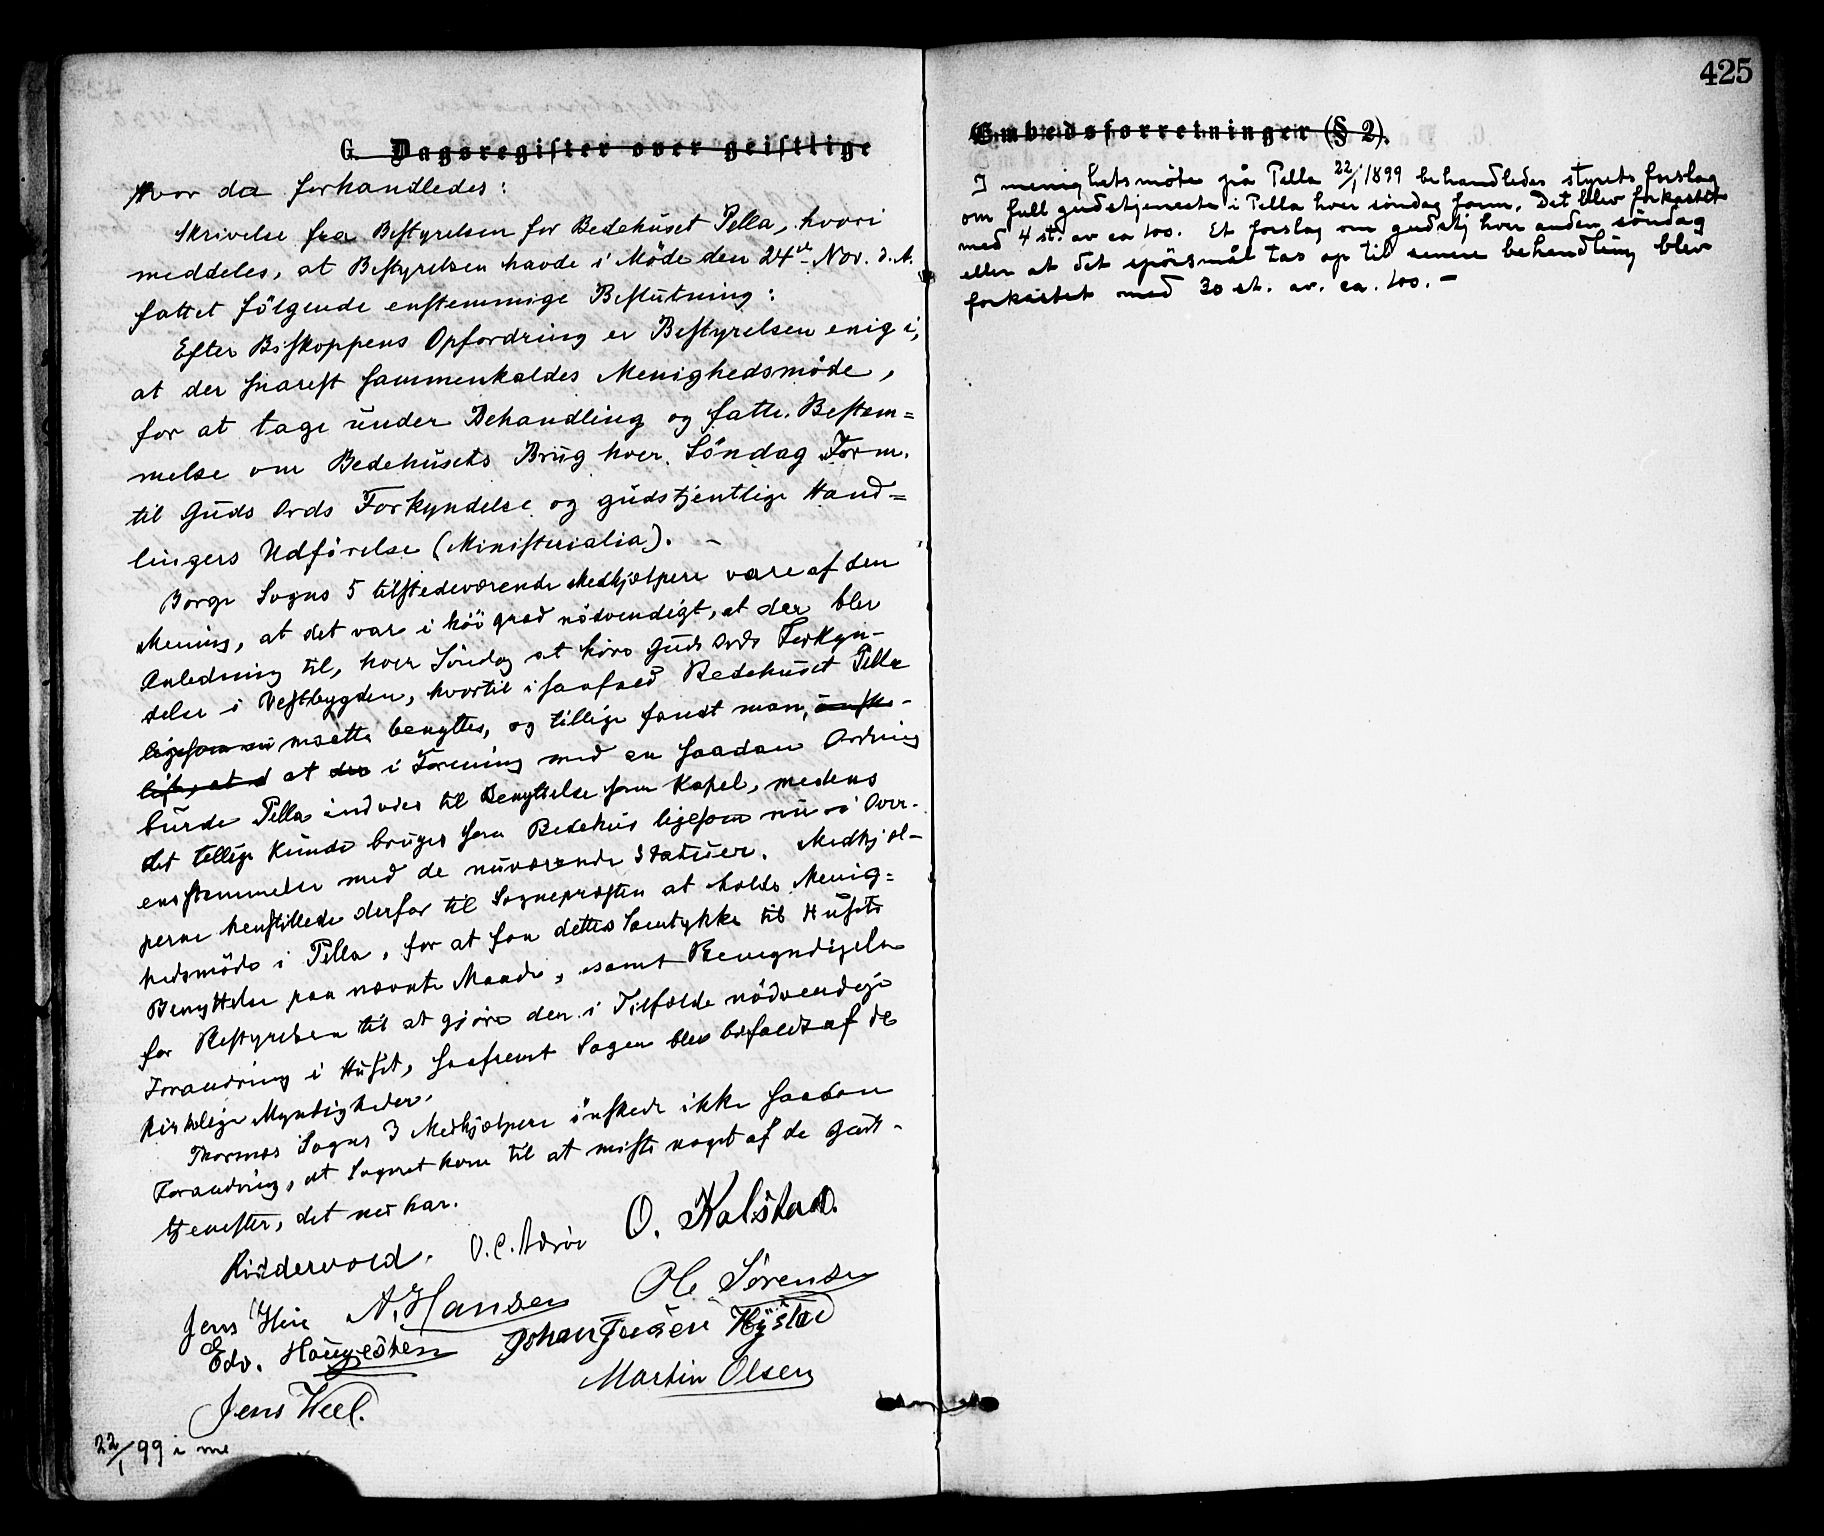 G. Dagsregister over geistlige
Hvor da forhandledes:
Skrivelse fra Bestyrelsen for Bedehuset Pella, hvori
meddeles, at Bestyrelsen havde i Møde den 24de Nov. d.A.
fattet følgende enstemmige Beslutning:
Efter Biskoppens Opfordring er Bestyrelsen enig i,
at der snarest sammenkaldes Menighedsmøde,
for at tage under Behandling og fatte Bestem=
melse om Bedehusets Brug hver Søndag Form.
til Guds Ords Forkyndelse og gudstjentlige Hand=
lingers Udførelse (Ministerialia). –
Borge Sogns 5 tilstedeværende Medhjælpere vare af den
Mening, at det var i høi grad nødvendigt, at der blev
Anledning til, hver Søndag at høre Guds Ords Forkyn-
delse i Vestbygden, hvortil i saafald Bedehuset Pella
ligesom nu maatte benyttes, og tillige fandt man, ønske-
ligt, at d at der i Forening med en saadan Ordning
burde Pella indvies til Benyttelse som Kapel, medens
det tillige kunde bruges som Bedehus ligesom nu i Over-
ensstemmelse med de nuværende Statuer. Medhjæl-
perne henstillede derfor til Sognepræsten at holde Menig=
hedsmøde i Pella, for at faa dettes Samtykke til Husets
Benyttelse paa nævnte Maade, samt Bemyndigelse
for Bestyrelsen til at gjøre den i Tilfælde nødvendige
Forandring i Huset, saafremt Sagen blev bifaldt af de
kirkelige Myndigheder.
Thorsnæs Sogns 3 Medhjælpere ønskede ikke saadan
Forandring, at Sognet kom til at miste noget af de Guds-
tjenester, det nu har.
Riddervold. O. C. O. Kalstad.
Jens A. Hansen Ole Sørensen
Edv. Haugesten Johan Jensen
Jens Heel. Martin Olsen
22/1 99 i me
425
Embedsforretninger (§ 2).
I menighetsmöte på Pella 22/1 1899 behandledes styrets forslag
om full gudstjeneste i Pella hver söndag form. Det blev forkastet
med 4 st. av ca 100. Et forslag om gudstj hver anden söndag
eller at det spörsmål tas op til senere behandling blev
forkastet med 30 st. av. ca. 100. –